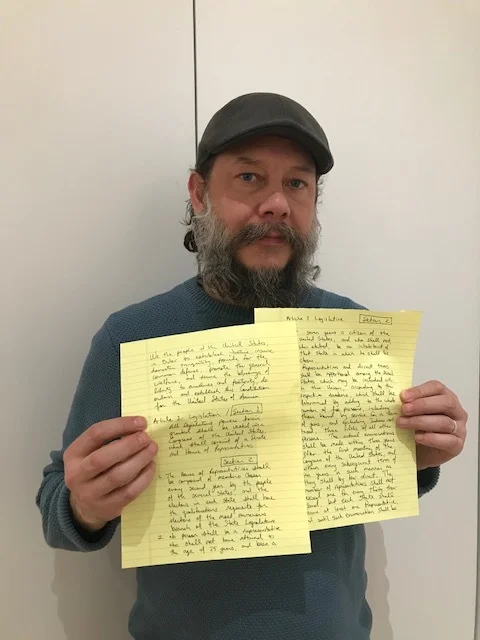 We the people of the United States,
Order to establish justice, insure
domestic tranquility, provide for the
common defense, promote the general
Welfare, and secure the blessings of
liberty to ourselves and posterity do
ordain and establish this constitution
for the United States of America
Article I. Legislative / Section 1
All legislative powers herein
granted shall be vested in a
Congress of the United States
which shall consist of a Senate
and House of Representatives.
Section 2
1. The House of Representatives shall
be composed of members chosen
every second year by the people
of the several States, and the
electors in each state shall have
the qualifications requisite for
electors of the most numerous
branch of the State Legislature
2. No person shall be a representative
who shall not have attained to
the age of 25 years, and been a
Article I Legislative Section 2
seven years a citizen of the
United States, and who shall not
when elected, be an inhabitant of
that State in which he shall be
chosen.
Representatives and direct taxes
shall be apportioned among the several
States which may be included within
this Union, according to their
respective numbers, which shall be
determined by adding to the whole
number of free persons, including
those bound to service for a term
of years, and excluding Indians
taxed, three fifths of all other
persons. The actual enumeration
shall be made within three years
after the first meeting of the
congress of the United States, and
within every subsequent term of
ten years, in such manner as
they shall by law direct. The
number of representatives shall not
exceed one for every thirty thousand
but each State shall
have at least one Representative
until such enumeration shall be